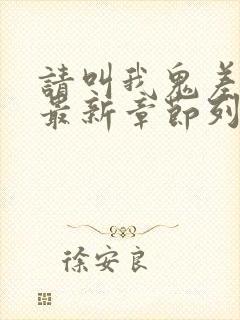 請叫我鬼差
最新章節列
徐安良